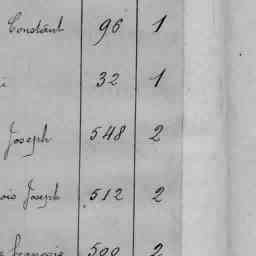 Constant 96 1
i 32 1
Joseph 548 2
ois Joseph 512 2
françois 500 2